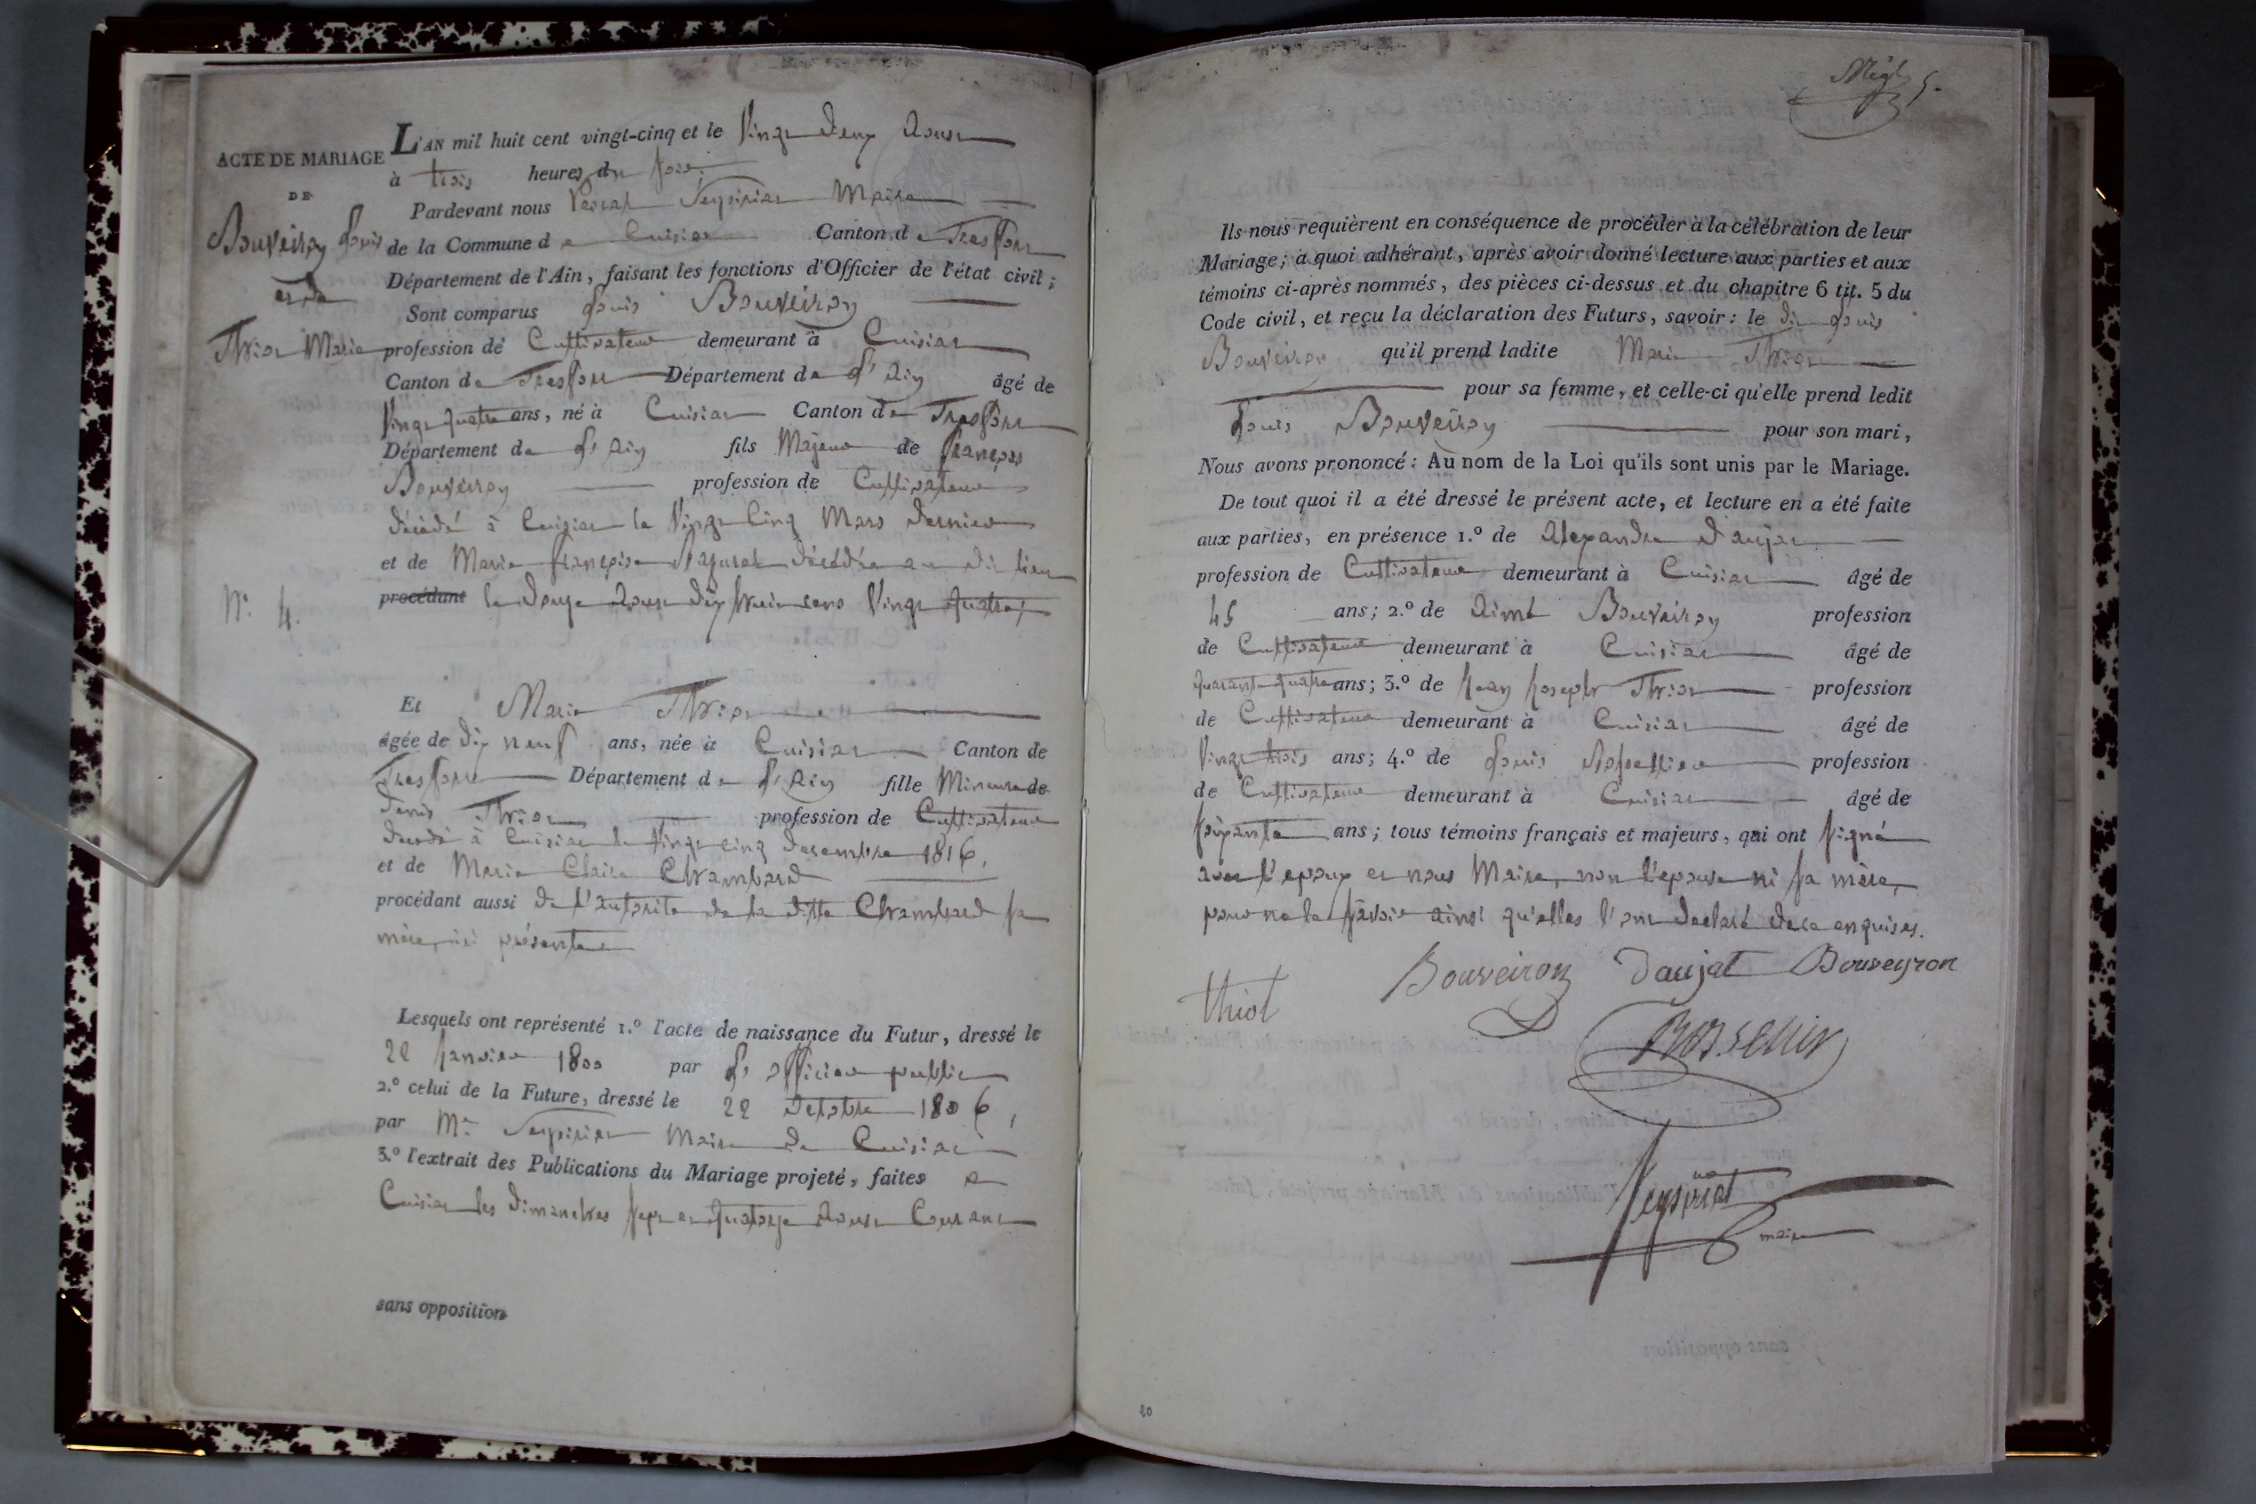 ACTE DE MARIAGE
DE
Bouveiron Louis
et de
Thiot Marie
N.° 4.
L'AN mil huit cent vingt-cinq et le Vingt deux Aoust
à trois heures du soir.
Pardevant nous Pascal Seysiriat Maire
de la Commune de Cuisiat Canton de Treffort
Département de l'Ain, faisant les fonctions d'Officier de l'état civil;
Sont comparus Louis Bouveiron
profession de Cultivateur demeurant à Cuisiat
Canton de Treffort Département de L'Ain âgé de
Vingt quatre ans, né à Cuisiat Canton de Treffort
Département de L'Ain fils Majeur de françois
Bouveiron profession de Cultivateur
décédé à Cuisiat le Vingt Cinq Mars dernier
et de Marie françoise décédée au dit lieu
procédant le douze Aoust dix huit cent Vingt quatre,
Et Marie Thiot
âgée de dix neuf ans, née à Cuisiat Canton de
Treffort Département de L'Ain fille Mineure de
denis Thiot profession de Cultivateur
décédé à Cuisiat le Vingt cinq decembre 1816,
et de Marie Claire Chambard
procédant aussi de l'autorité de la ditte Chambard sa
mère, ici présente
Lesquels ont représenté 1.° l'acte de naissance du Futur, dressé le
22 Janvier 1800 par L'officier public
2.° celui de la Future, dressé le 22 Octobre 1806,
par Mr Seysiriat Maire de Cuisiat
3.° l'extrait des Publications du Mariage projeté, faites a
Cuisiat les dimanches sept et quatorze Aoust Courant
sans opposition
5.
Ils nous requièrent en conséquence de procéder à la célébration de leur
Mariage; à quoi adhérant, après avoir donné lecture aux parties et aux
témoins ci-après nommés, des pièces ci-dessus et du chapitre 6 tit. 5 du
Code civil, et reçu la déclaration des Futurs, savoir: le dit Louis
Bouveiron qu'il prend ladite Marie Thiot
pour sa femme, et celle-ci qu'elle prend ledit
Louis Bouveiron pour son mari,
Nous avons prononcé: Au nom de la Loi qu'ils sont unis par le Mariage.
De tout quoi il a été dressé le présent acte, et lecture en a été faite
aux parties, en présence 1.° de Alexandre Daujat
profession de Cultivateur demeurant à Cuisiat âgé de
45 ans; 2.° de Aimé Bouveiron profession
de Cultivateur demeurant à Cuisiat âgé de
quarante quatre ans; 3.° de Jean Joseph Thiot profession
de Cultivateur demeurant à Cuisiat âgé de
Vingt trois ans; 4.° de Louis profession
de Cultivateur demeurant à Cuisiat âgé de
soixante ans; tous témoins français et majeurs, qui ont signé
avec l'epoux et nous Maire, non l'epouse ni sa mère,
pour ne le savoir ainsi qu'elles l'ont declaré de ce enquises.
thiot Bouveiron Daujat Bouveyron
Seysiriat
maire
20